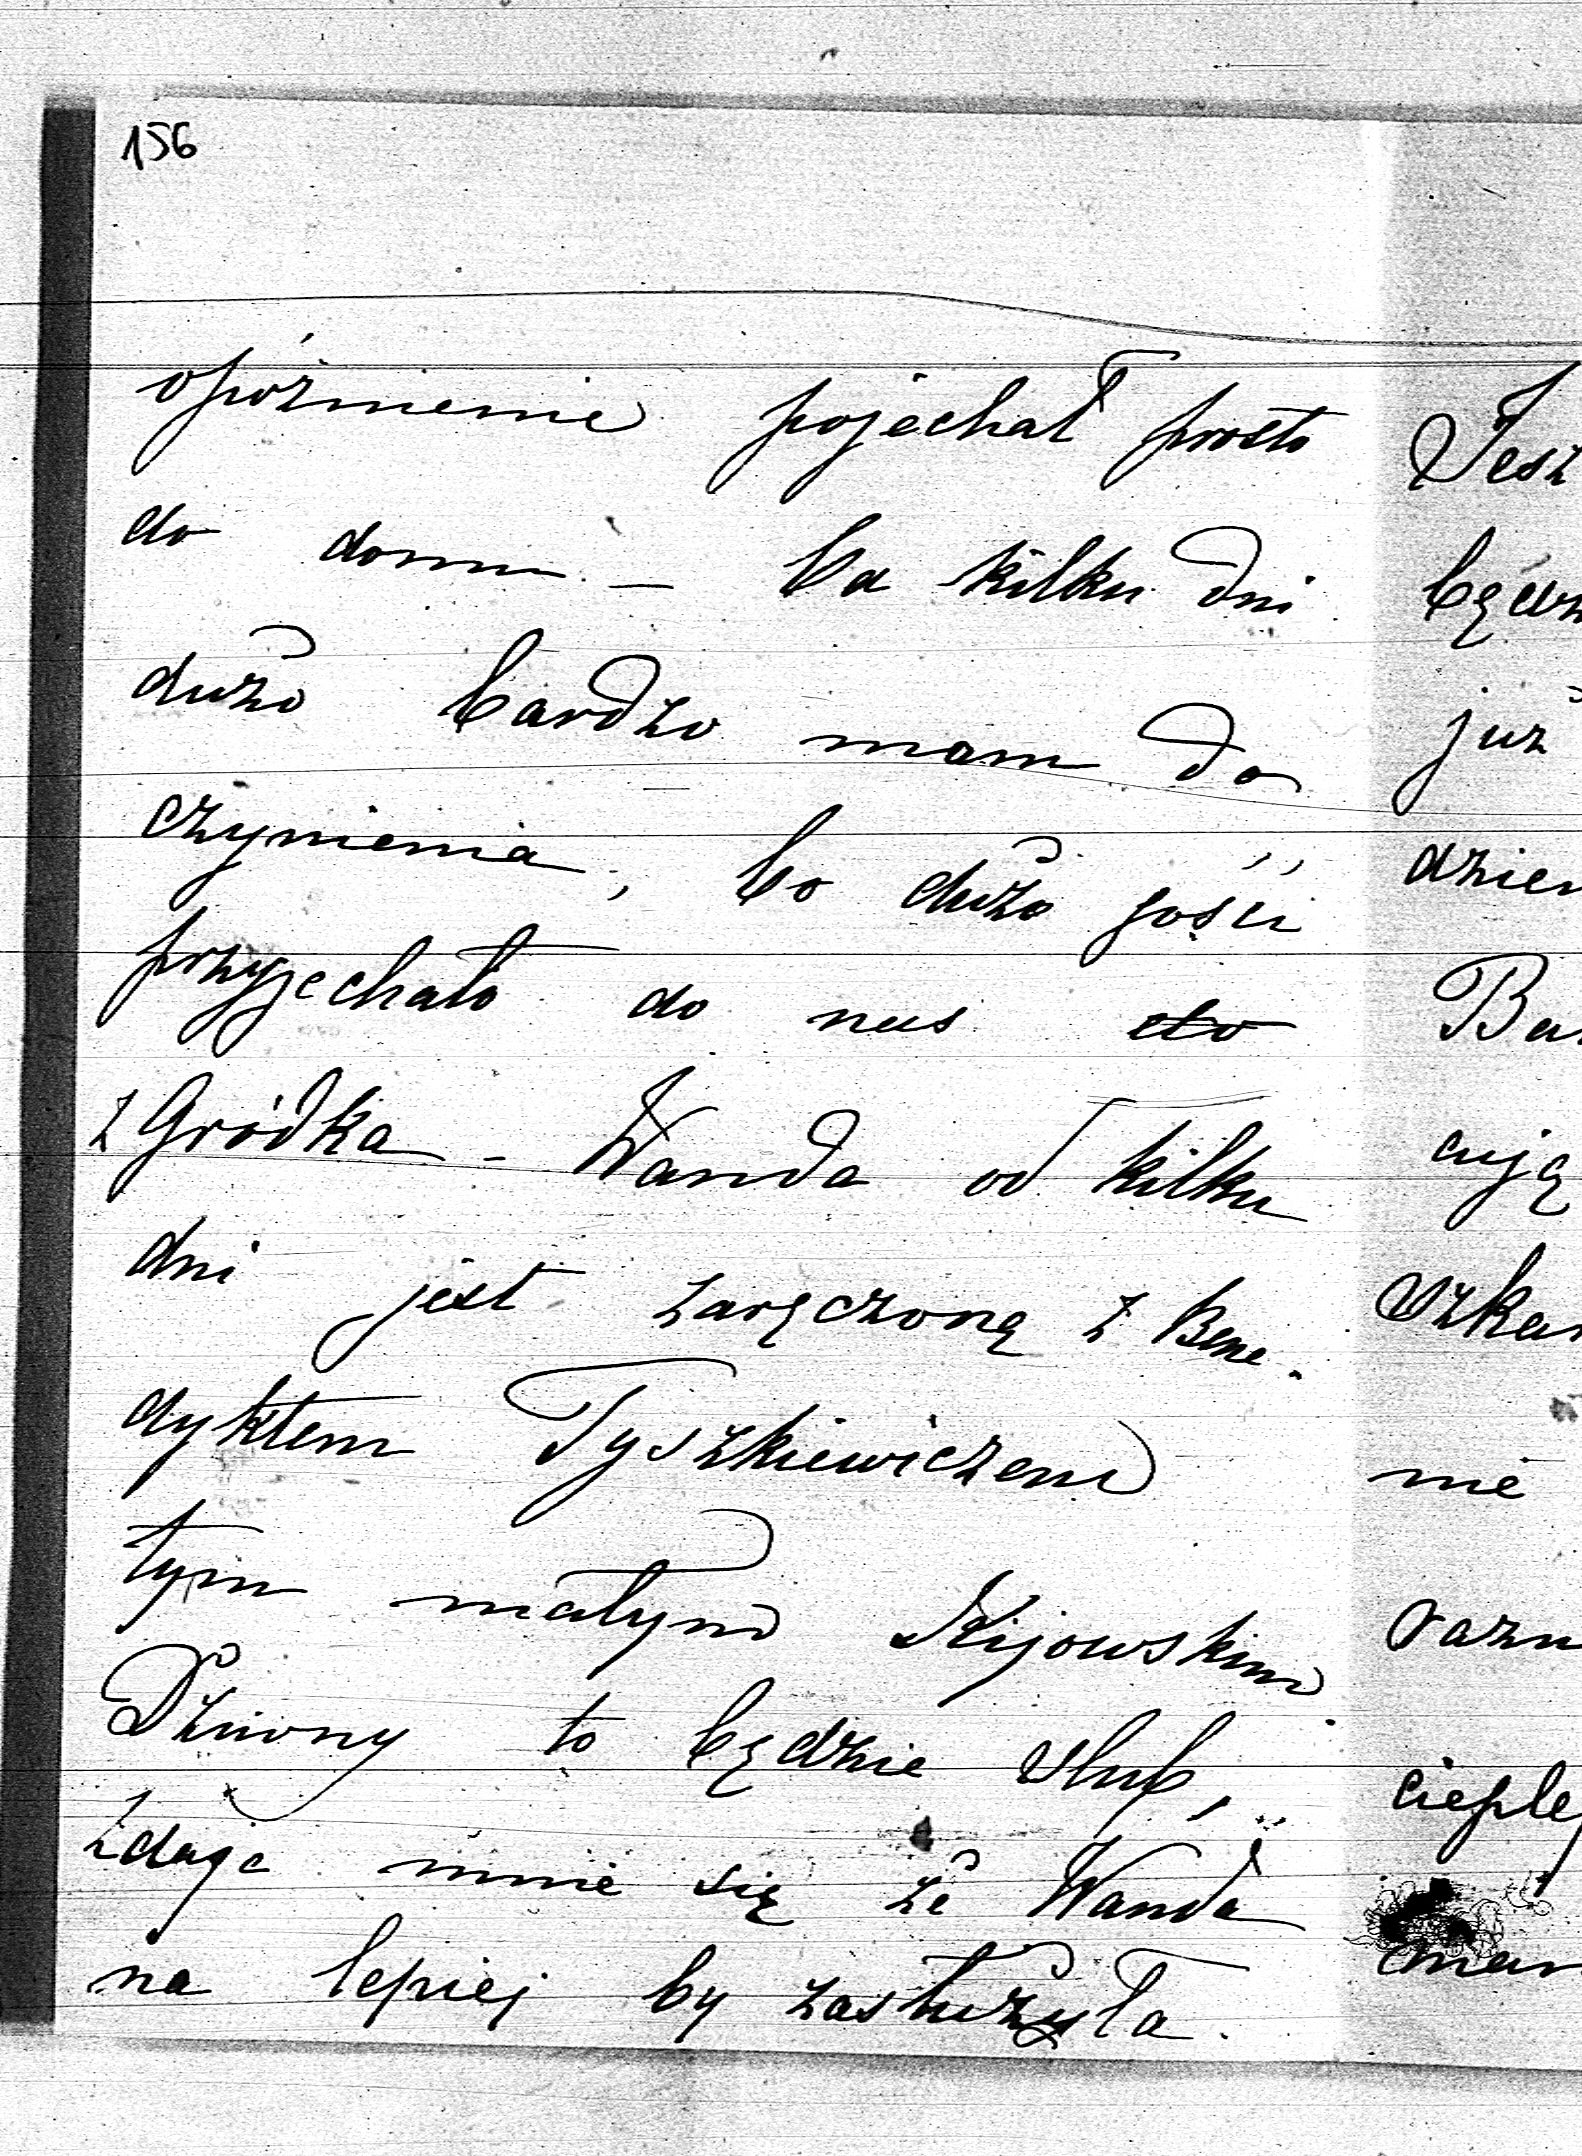 156
opóźnienie pojechał prosto
do domu. — Ca kilku dni
dużo bardzo mam do
czynienia, bo dużo gości
przyjechało do nas do
z Gródka - Wanda od kilku
dni jest zaręczoną z Bene-
dyktem Tyszkiewiczem
tym małym Kijowskim
Dziwny to będzie ślub,
zdaje mnie się że Wanda
na lepiej by zasłużyła.
Jesz
będz
już
dzien
Ba
cują
szka
nie
razu
cieple